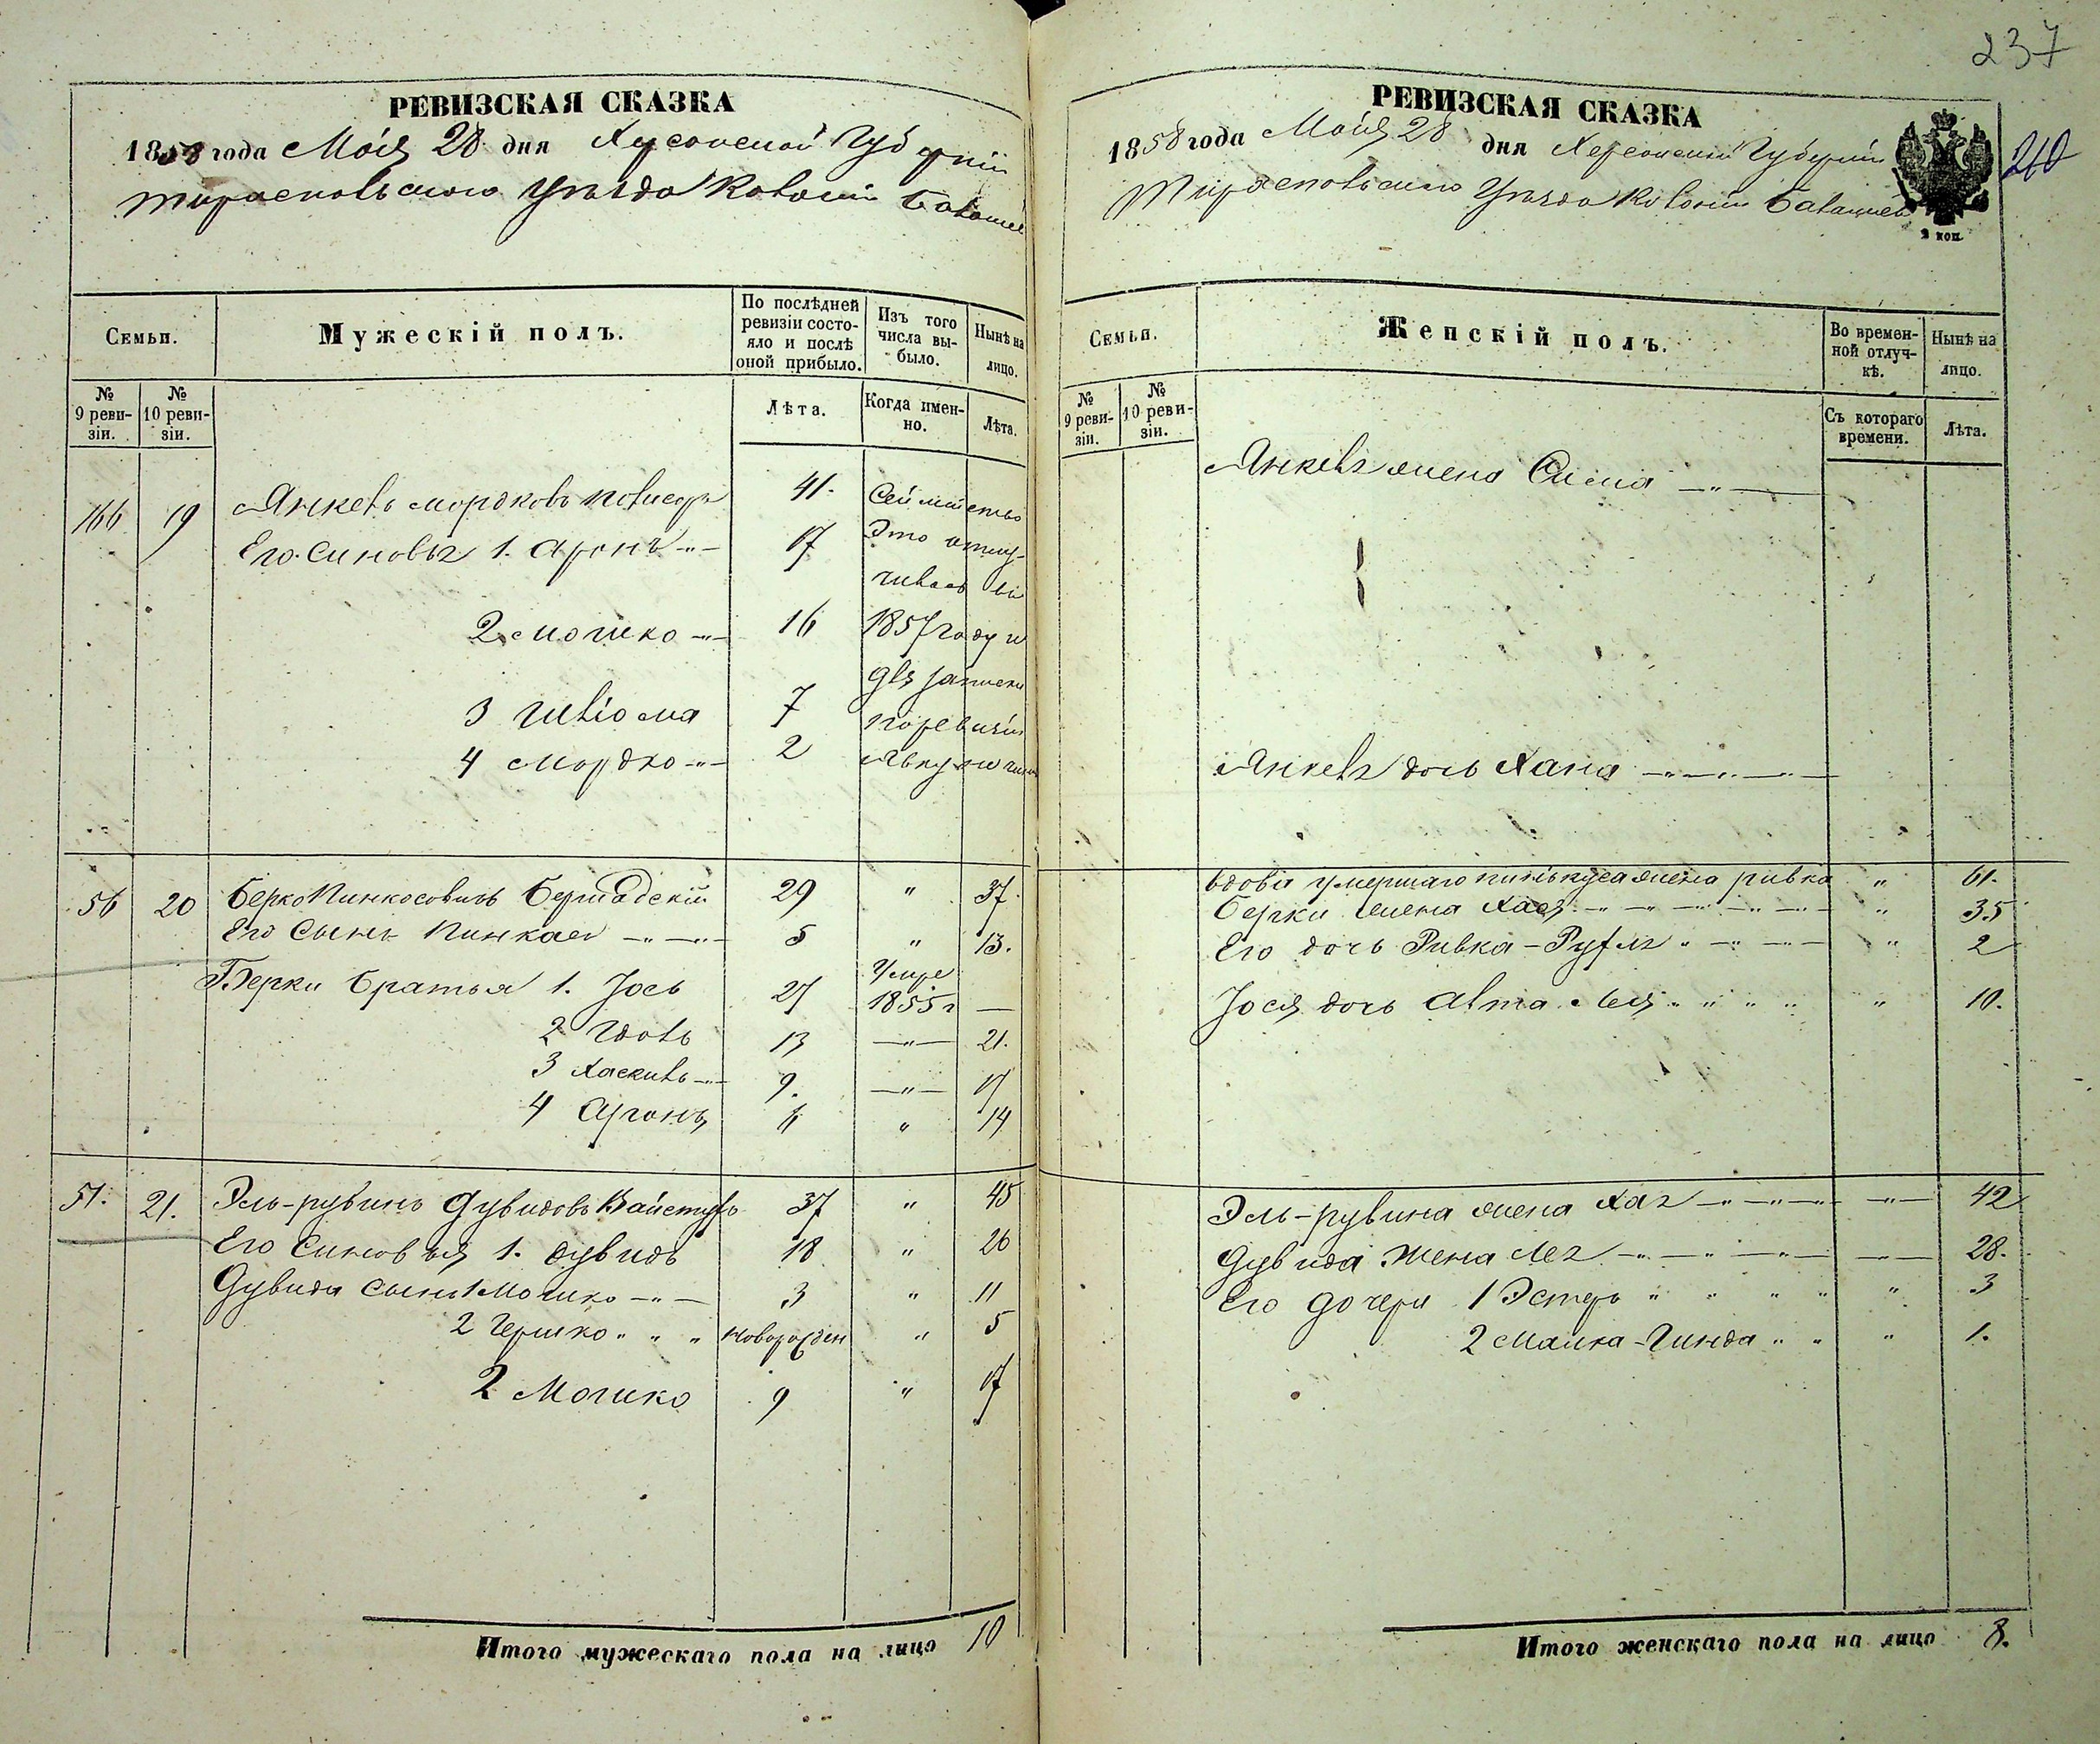 237
РЕВИЗСКАЯ СКАЗКА
1858 года Мая 28 дня Херсонской Губерніи
Тираспольскаго Уѣзда Колоніи
Семьи.
Мужескій полъ.
По послѣдней ревизіи состояло и послѣ оной прибыло.
Изъ того числа выбыло.
Нынѣ на лицо.
№ 9 ревизіи.
№ 10 ревизіи.
Лѣта.
Когда именно.
Лѣта.
166 19 Янкель Мордковъ 41. Сеймейство
Его Синовья 1. Аронъ 17 Это отлу-
чилось въ
2 Мошко 16 1857 году и
для записки
3 Шліома 7 по ревизіи
4 Мордко 2
56 20 Берко Пинкосовичъ Бершадскій 29 " 37.
Его Сынъ Пинкас 5 " 13.
Берки братья 1. Іось 27 Умре 1855 г —
2 13 —"— 21.
3 Хаскиль 9. —"— 17
4 Аронъ 6 " 14
57. 21. Эль-рувинъ Дувидовъ 37 " 45
Его Синовья 1. Дувидъ 18 " 26
Дувида Сыны 1 Мошко 3 " 11
2 Гершко " " " новорожден " 5
2 Мошко 9 " 17
Итого мужескаго пола на лицо 10
РЕВИЗСКАЯ СКАЗКА
1858 года Мая 28 дня Херсонской Губерніи
Тираспольскаго Уѣзда Колоніи
210
2 коп.
Семьи.
Женскій полъ.
Во временной отлучкѣ.
Нынѣ на лицо.
№ 9 ревизіи.
№ 10 ревизіи.
Съ котораго времени.
Лѣта.
Янкеля жена Сима —"—
Янкеля дочь Хана —"—"—"—
Вдова умершаго Пинькуса жена Ривка " 61.
Берки жена Хая " 35
Его дочь Ривка-Руфля " 2
Іося дочь Алта Лея " " " " " 10.
Эль-рувина жена Хая —"— 42
Дувида жена Лея —"— 28.
Его дочери 1 Эстеръ " " " " " 3
2 Малка-Гинда " " " 1.
Итого женскаго пола на лицо 8.